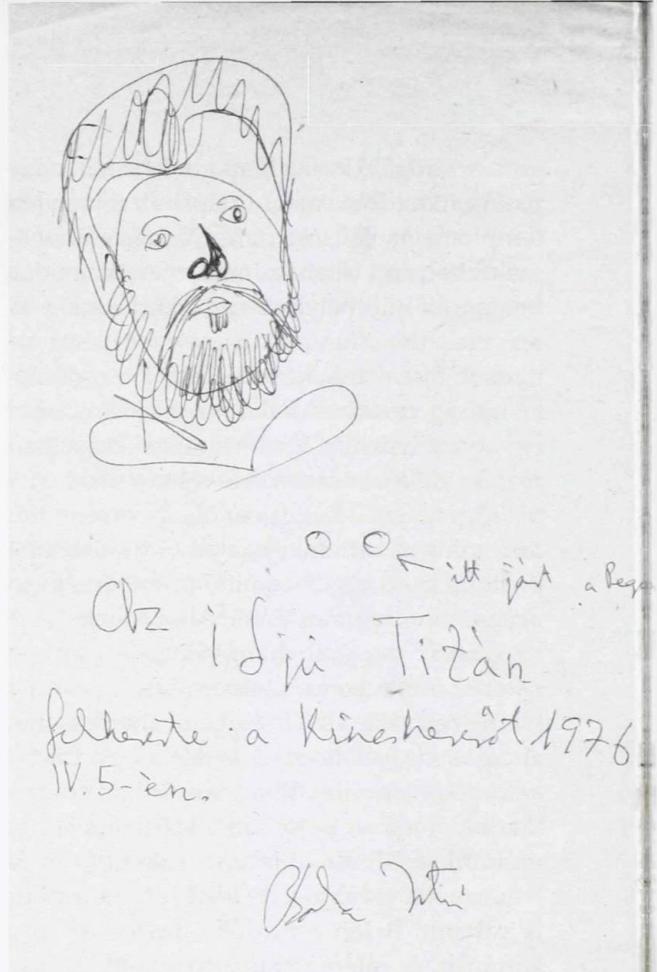 itt járt a
Az Ifjú Titán
fölkereste a Kincskeresőt 1976
IV. 5-én.